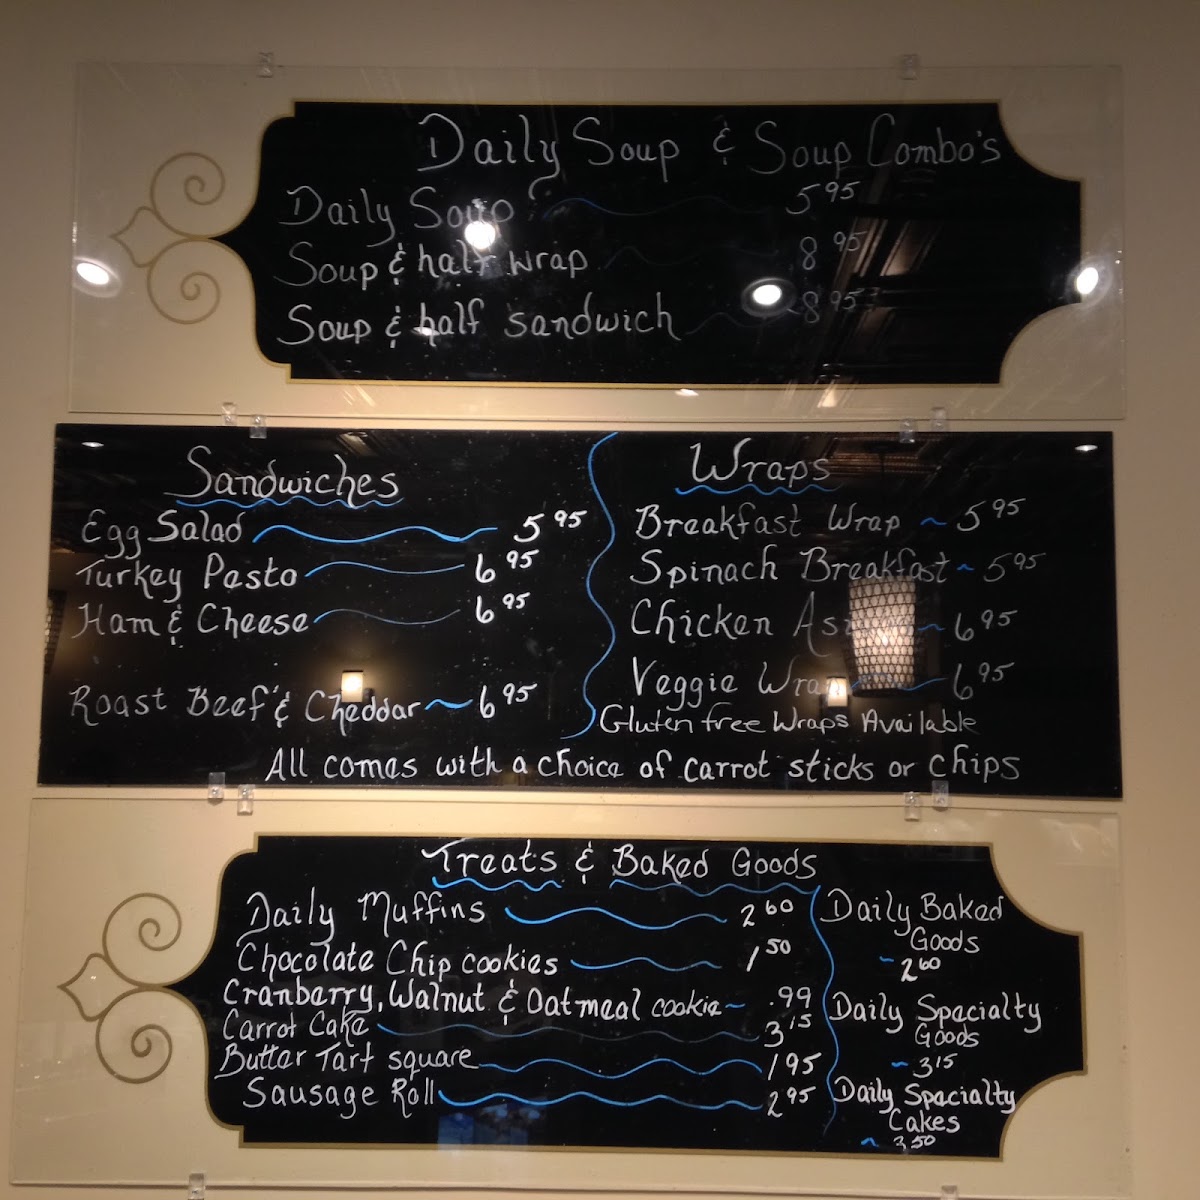 Daily Soup & Soup Combo's
Daily Soup 5.95
Soup & half wrap 8.95
Soup & half sandwich 8.95
Sandwiches
Egg Salad 5.95
Turkey Pesto 6.95
Ham & Cheese 6.95
Roast Beef & Cheddar ~ 6.95
Wraps
Breakfast Wrap ~ 5.95
Spinach Breakfast ~ 5.95
Chicken ~ 6.95
Veggie Wrap ~ 6.95
Gluten free Wraps Available
All comes with a choice of carrot sticks or chips
Treats & Baked Goods
Daily Muffins 2.60
Chocolate Chip cookies 1.50
Cranberry, Walnut & Oatmeal cookie ~ .99
Carrot Cake 3.15
Butter Tart square 1.95
Sausage Roll 2.95
Daily Baked
Goods
~ 2.60
Daily Specialty
Goods
~ 3.15
Daily Specialty
Cakes
~ 3.50